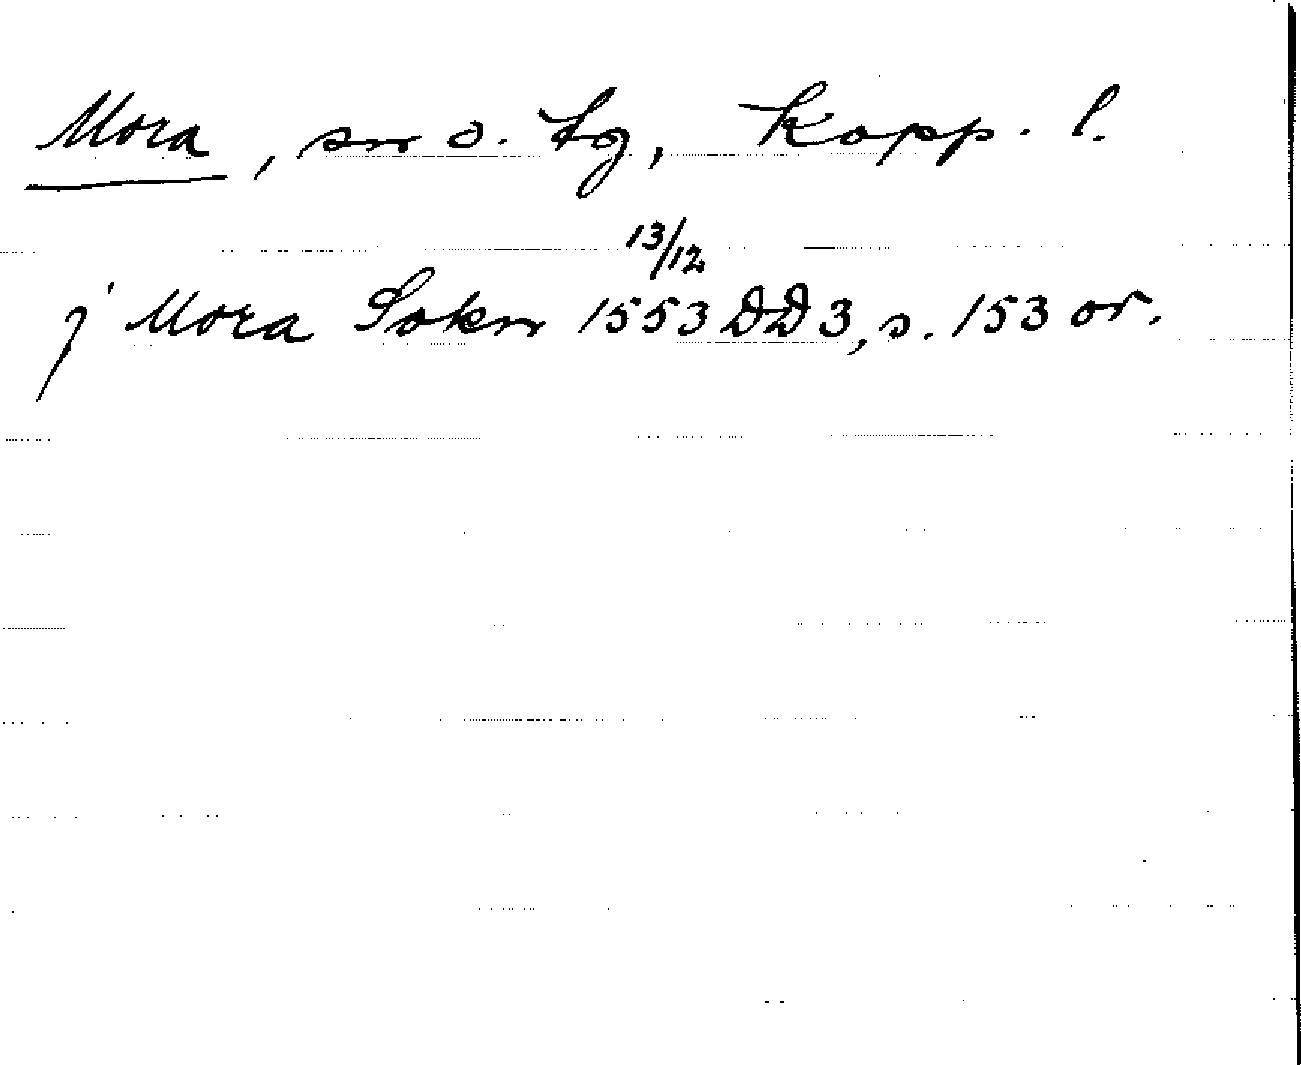 Mora, sn o. tg, Kopp. l.
13/12
j Mora Sokn 1553 DD3, s. 153 or.